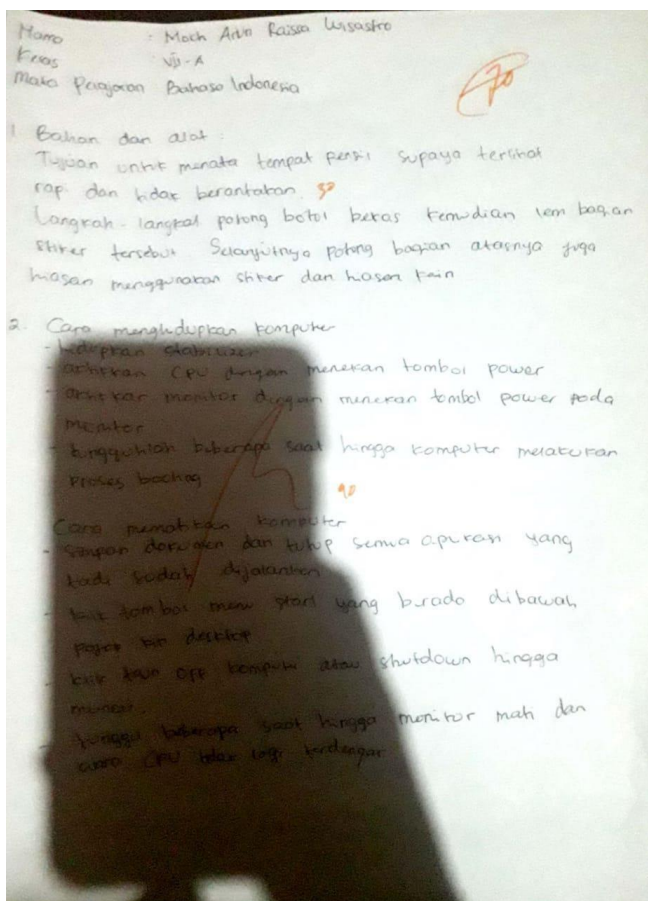 Nama : Moch Arvin Raissa Wisastro
Kelas : VII - A
Mata Pelajaran Bahasa Indonesia
70
1. Bahan dan alat :
Tujuan untuk menata tempat pensil supaya terlihat
rapi dan tidak berantakan. 30
Langkah - langkah potong botol bekas kemudian lem bagian
stiker tersebut. Selanjutnya potong bagian atasnya juga
hiasan menggunakan stiker dan hiasan kain
2. Cara menghidupkan komputer
- hidupkan stabilizer
- aktifkan CPU dengan menekan tombol power
- aktifkan monitor dengan menekan tombol power pada
monitor
- tungguhlah beberapa saat hingga komputer melakukan
proses booting
40
Cara mematikan komputer
- Simpan dokumen dan tutup semua aplikasi yang
tadi sudah dijalankan
- klik tombol menu start yang berada dibawah
pojok kiri desktop
- klik turn off komputer atau shutdown hingga
- tunggu beberapa saat hingga monitor mati dan
suara CPU tidak lagi terdengar